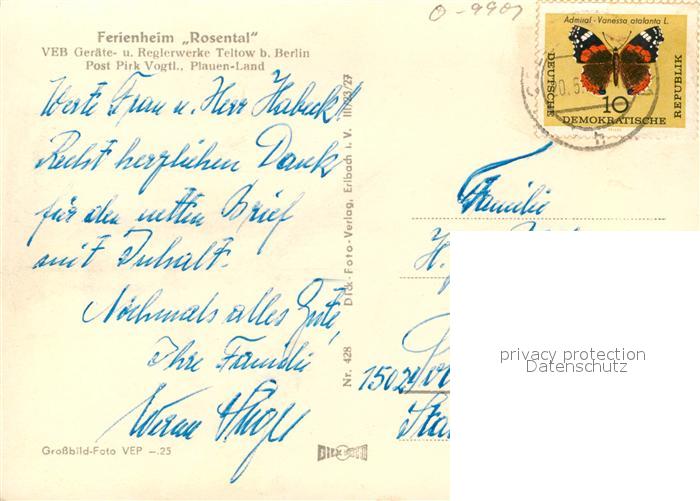 Ferienheim „Rosental"
VEB Geräte- u. Reglerwerke Teltow b. Berlin
Post Pirk Vogtl., Plauen-Land
Werte Frau u. Herr
Recht herzlichen Dank
für den netten Brief
mit Inhalt.
Nochmals alles Gute,
Ihre Familie
Werner
Großbild-Foto VEP -.25
Nr. 428 Dick-Foto-Verlag, Erlbach i. V. III/23/27
DICK
0-9907
Admiral - Vanessa atalanta L.
DEUTSCHE
DEMOKRATISCHE
REPUBLIK
10
Familie
H.
privacy protection
Datenschutz